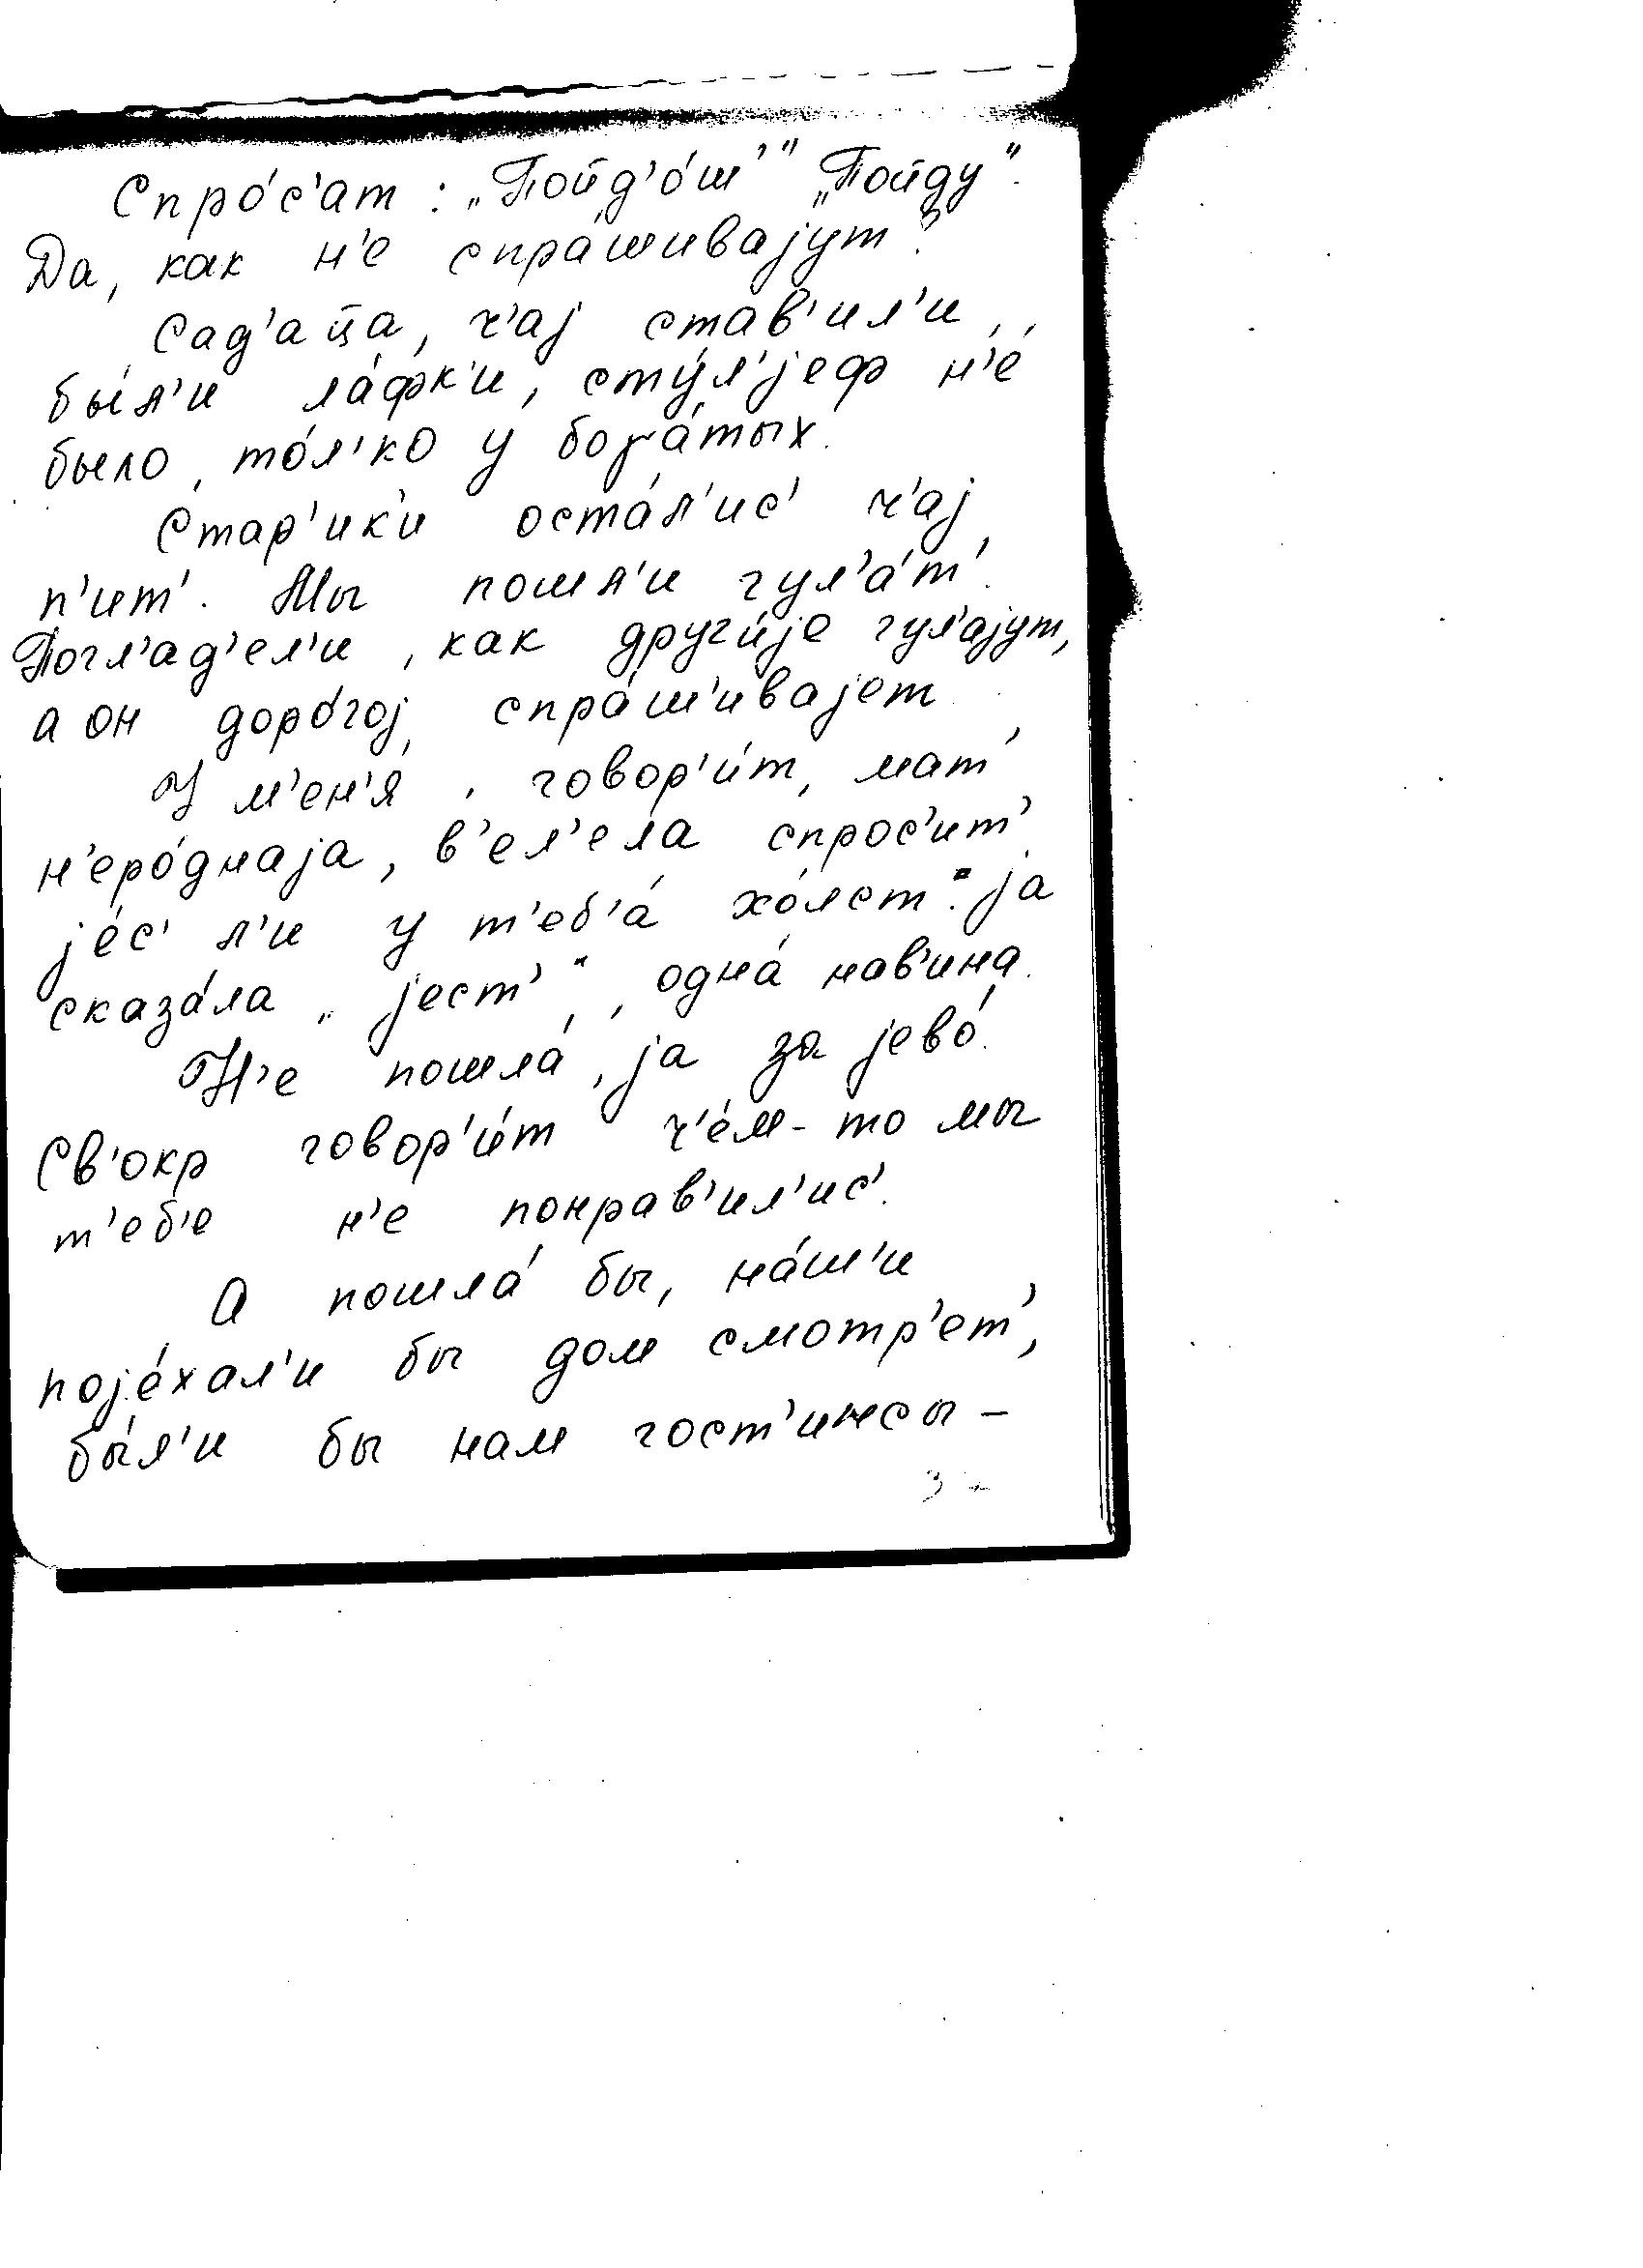 Спро́с'ат : „Пойд'о́ш'" „Пойду".
Да, как н'е спра́шивајут?
Сад'аца, ч'ај став'ил'и,
бы́л'и ла́фк'и, сту́л'јеф н'е́
было, то́л'ко у бога́тых.
Стар'ик'и оста́л'ис' ч'ај
п'ит'. Мы пошл'и гул'а́т'.
Погл'ад'ел'и, как други́је гул'ајут,
а он доро́гој, спра́ш'ивајет
У м'ен'я́, говор'и́т, мат'
н'еро́днаја, в'ел'ела спрос'ит'
је́с' л'и у т'еб'а́ хо́лст". ја
сказа́ла „ јест'", одна́ нав'ина.
Н'е пошла́, ја за јево́.
Св'окр говор'и́т ч'е́м-то мы
т'еб'е н'е понрав'ил'ис'.
А пошла́ бы, на́ш'и
поје́хал'и бы дом смотр'ет',
бы́л'и бы нам гост'инсы -